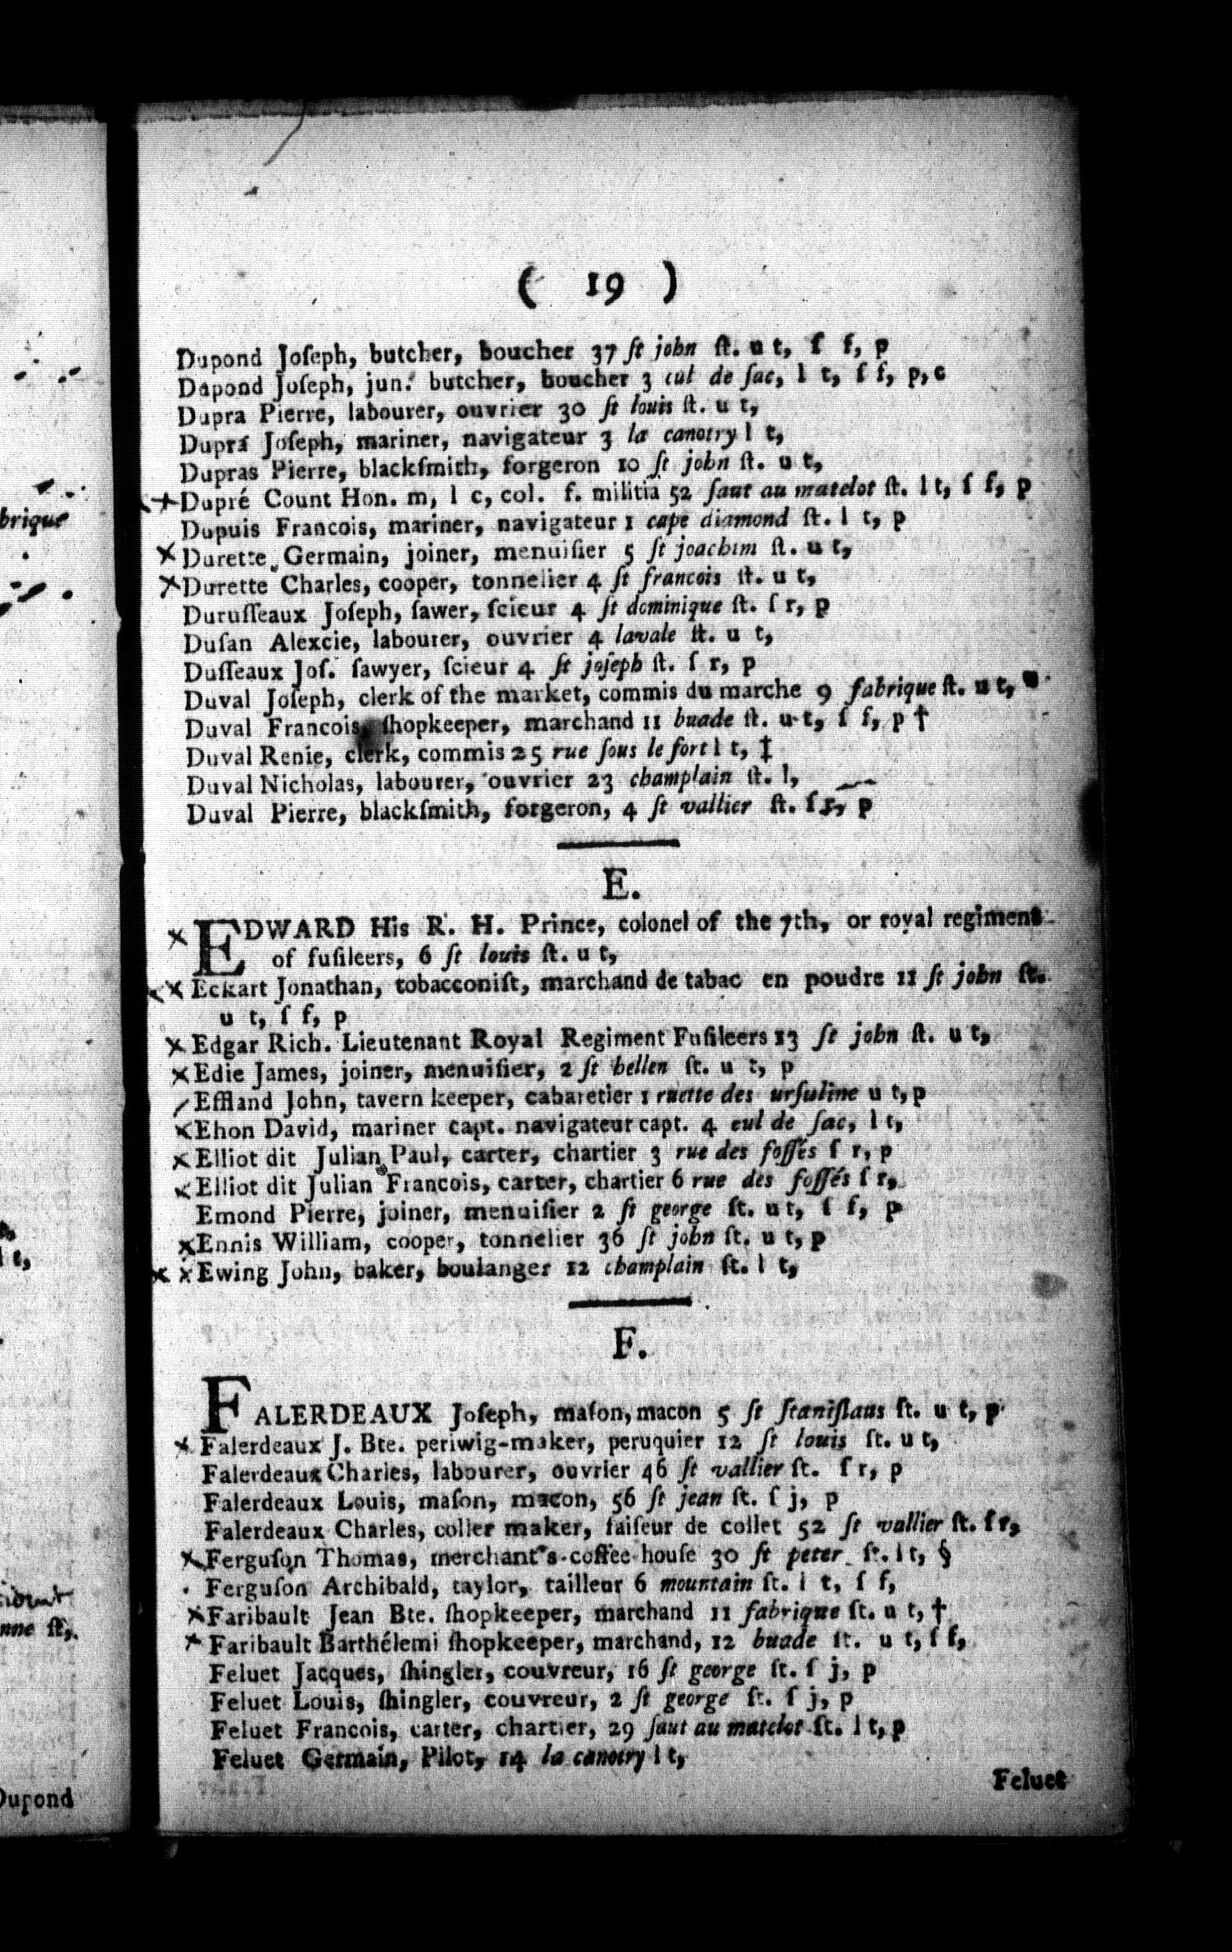 ( 19 )
Dupond Joſeph, butcher, boucher 37 ſt john ſt. u t, ſ f, p
Dupond Joſeph, jun. butcher, boucher 3 cul de ſac, l t, ſ f, p, c
Dupra Pierre, labourer, ouvrier 30 ſt louis ſt. u t,
Dupra Joſeph, mariner, navigateur 3 la canotry l t,
Dupras Pierre, blackſmith, forgeron 10 ſt john ſt. u t,
Dupré Count Hon. m, l c, col. f. militia 52 ſaut au matelot ſt. l t, ſ f, p
Dupuis Francois, mariner, navigateur 1 cape diamond ſt. l t, p
Durette Germain, joiner, menuiſier 5 ſt joachim ſt. u t,
Durette Charles, cooper, tonnelier 4 ſt francois ſt. u t,
Duruſſeaux Joſeph, ſawer, ſcieur 4 ſt dominique ſt. ſ r, p
Duſan Alexcie, labourer, ouvrier 4 lavale ſt. u t,
Duſſeaux Joſ. ſawyer, ſcieur 4 ſt joſeph ſt. ſ r, p
Duval Joſeph, clerk of the market, commis du marche 9 fabrique ſt. u t,
Duval Francois, ſhopkeeper, marchand 11 buade ſt. u t, ſ f, p †
Duval Renie, clerk, commis 25 rue ſous le fort l t, ‡
Duval Nicholas, labourer, ouvrier 23 champlain ſt. l,
Duval Pierre, blackſmith, forgeron, 4 ſt vallier ſt. ſ r, p
E.
EDWARD His R. H. Prince, colonel of the 7th, or royal regiment
of fuſileers, 6 ſt louis ſt. u t,
Eckart Jonathan, tobacconiſt, marchand de tabac en poudre 11 ſt john ſt.
u t, ſ f, p
Edgar Rich. Lieutenant Royal Regiment Fuſileers 13 ſt john ſt. u t,
Edie James, joiner, menuiſier, 2 ſt hellen ſt. u t, p
Effland John, tavern keeper, cabaretier 1 ruette des urſuline u t, p
Ehon David, mariner capt. navigateur capt. 4 cul de ſac, l t,
Elliot dit Julian Paul, carter, chartier 3 rue des foſſés ſ r, p
Elliot dit Julian Francois, carter, chartier 6 rue des foſſés ſ r,
Emond Pierre, joiner, menuiſier 2 ſt george ſt. u t, ſ f, p
Ennis William, cooper, tonnelier 36 ſt john ſt. u t, p
Ewing John, baker, boulanger 12 champlain ſt. l t,
F.
FALERDEAUX Joſeph, maſon, macon 5 ſt ſtaniſlaus ſt. u t, p
Falerdeaux J. Bte. periwig-maker, peruquier 12 ſt louis ſt. u t,
Falerdeaux Charles, labourer, ouvrier 46 ſt vallier ſt. ſ r, p
Falerdeaux Louis, maſon, macon, 56 ſt jean ſt. ſ j, p
Falerdeaux Charles, coller maker, faiſeur de collet 52 ſt vallier ſt. ſ r,
Ferguſon Thomas, merchant's-coffee-houſe 30 ſt peter ſt. l t, §
Ferguſon Archibald, taylor, tailleur 6 mountain ſt. l t, ſ f,
Faribault Jean Bte. ſhopkeeper, marchand 11 fabrique ſt. u t, †
Faribault Barthélemi ſhopkeeper, marchand, 12 buade ſt. u t, ſ f,
Feluet Jacques, ſhingler, couvreur, 16 ſt george ſt. ſ j, p
Feluet Louis, ſhingler, couvreur, 2 ſt george ſt. ſ j, p
Feluet Francois, carter, chartier, 29 ſaut au matelot ſt. l t, p
Feluet Germain, Pilot, 14 la canotry l t,
Feluet
brique
nne ſt,
Dupond